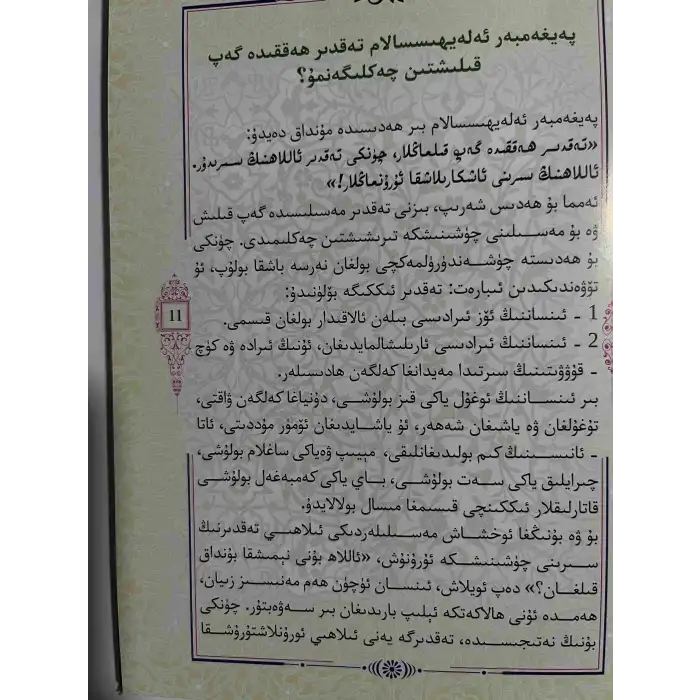 پەيغەمبەر ئەلەيھىسسالام تەقدىر ھەققىدە گەپ
قىلىشتىن چەكلىگەنمۇ؟
پەيغەمبەر ئەلەيھىسسالام بىر ھەدىسىدە مۇنداق دەيدۇ:
«تەقدىر ھەققىدە گەپ قىلماڭلار، چۈنكى تەقدىر ئاللاھنىڭ سىرىدۇر.
ئاللاھنىڭ سىرىنى ئاشكارىلاشقا ئۇرۇنماڭلار!»
ئەمما بۇ ھەدىس شەرىپ، بىزنى تەقدىر مەسىلىسىدە گەپ قىلىش
ۋە بۇ مەسىلىنى چۈشىنىشكە تىرىشىشتىن چەكلىمىدى. چۈنكى
بۇ ھەدىستە چۈشەندۈرۈلمەكچى بولغان نەرسە باشقا بولۇپ، ئۇ
تۆۋەندىكىدىن ئىبارەت: تەقدىر ئىككىگە بۆلۈنىدۇ:
1 - ئىنساننىڭ ئۆز ئىرادىسى بىلەن ئالاقىدار بولغان قىسمى.
2 - ئىنساننىڭ ئىرادىسى ئارىلىشالمايدىغان، ئۇنىڭ ئىرادە ۋە كۈچ
- قۇۋۋىتىنىڭ سىرتىدا مەيدانغا كەلگەن ھادىسىلەر.
بىر ئىنساننىڭ ئوغۇل ياكى قىز بولۇشى، دۇنياغا كەلگەن ۋاقتى،
تۇغۇلغان ۋە ياشىغان شەھەر، ئۇ ياشايدىغان ئۆمۈر مۇددىتى، ئاتا
- ئانىسىنىڭ كىم بولىدىغانلىقى، مېيىپ ۋەياكى ساغلام بولۇشى،
چىرايلىق ياكى سەت بولۇشى، باي ياكى كەمبەغەل بولۇشى
قاتارلىقلار ئىككىنچى قىسىمغا مىسال بولالايدۇ.
بۇ ۋە بۇنىڭغا ئوخشاش مەسىلىلەردىكى ئىلاھىي تەقدىرنىڭ
سىرىنى چۈشىنىشكە ئۇرۇنۇش، «ئاللاھ بۇنى نېمىشقا بۇنداق
قىلغان؟» دەپ ئويلاش، ئىنسان ئۈچۈن ھەم مەنىسىز زىيان،
ھەمدە ئۇنى ھالاكەتكە ئېلىپ بارىدىغان بىر سەۋەبتۇر. چۈنكى
بۇنىڭ نەتىجىسىدە، تەقدىرگە يەنى ئىلاھىي ئورۇنلاشتۇرۇشقا
11